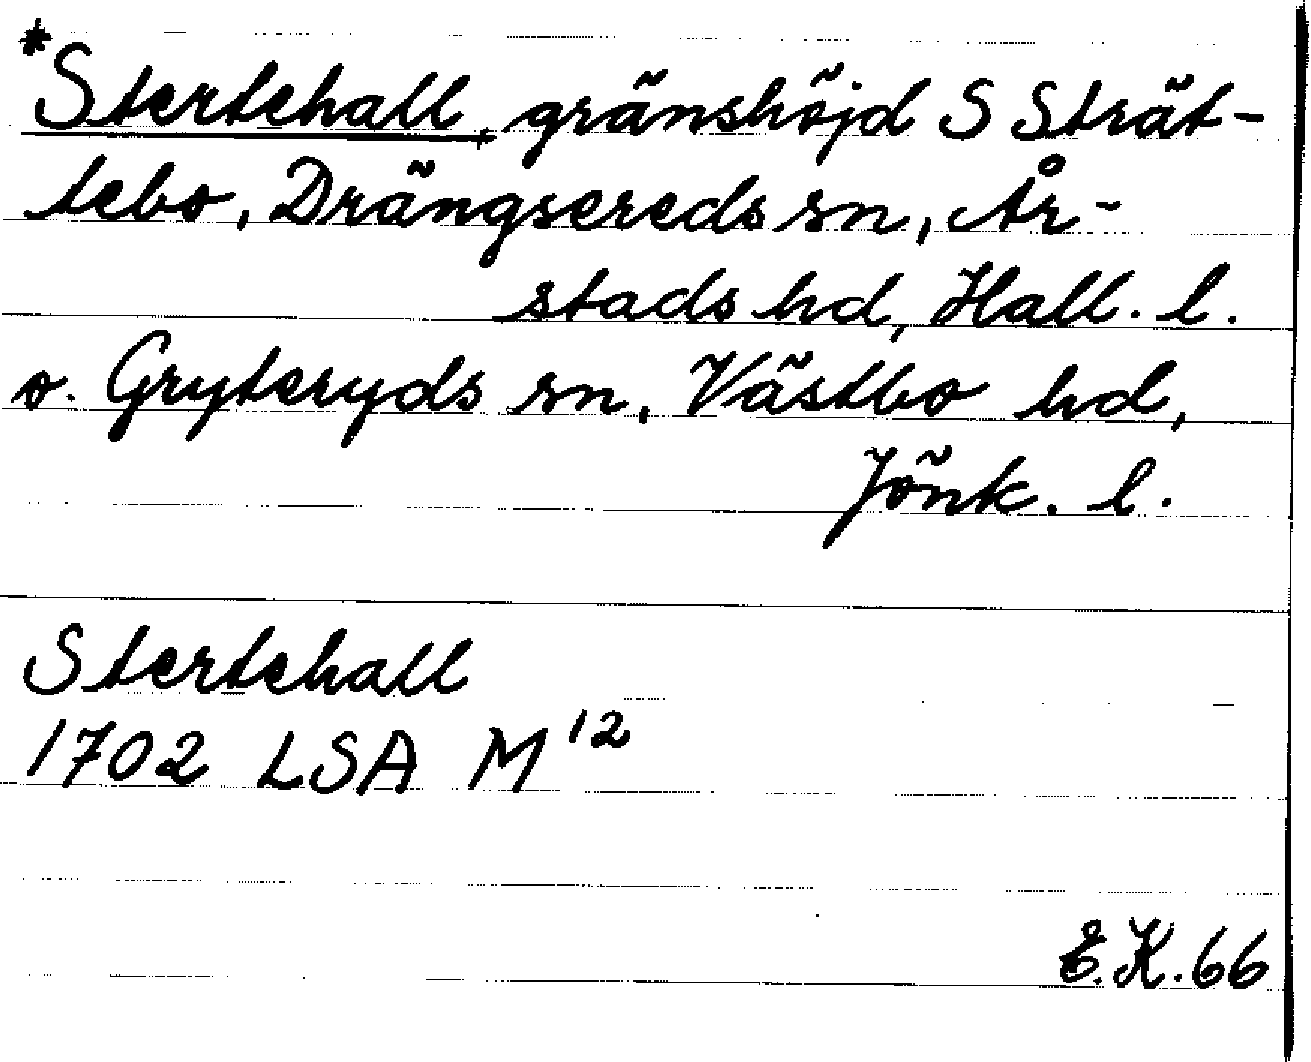 *Stertehall, gränshöjd S Strät-
tebo, Drängsereds sn, År-
stads hd, Hall. l.
o. Gryteryds sn, Västbo hd,
Jönk. l.
Stertehall
1702 LSA M¹²
E.K. 66